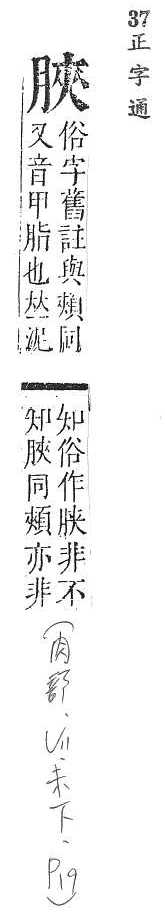 37 正字通
脥
俗字舊註與頰同
又音甲脂也𠀤泥
知俗作脥非不
知脥同頰亦非
(肉部.V11.未下.P19)